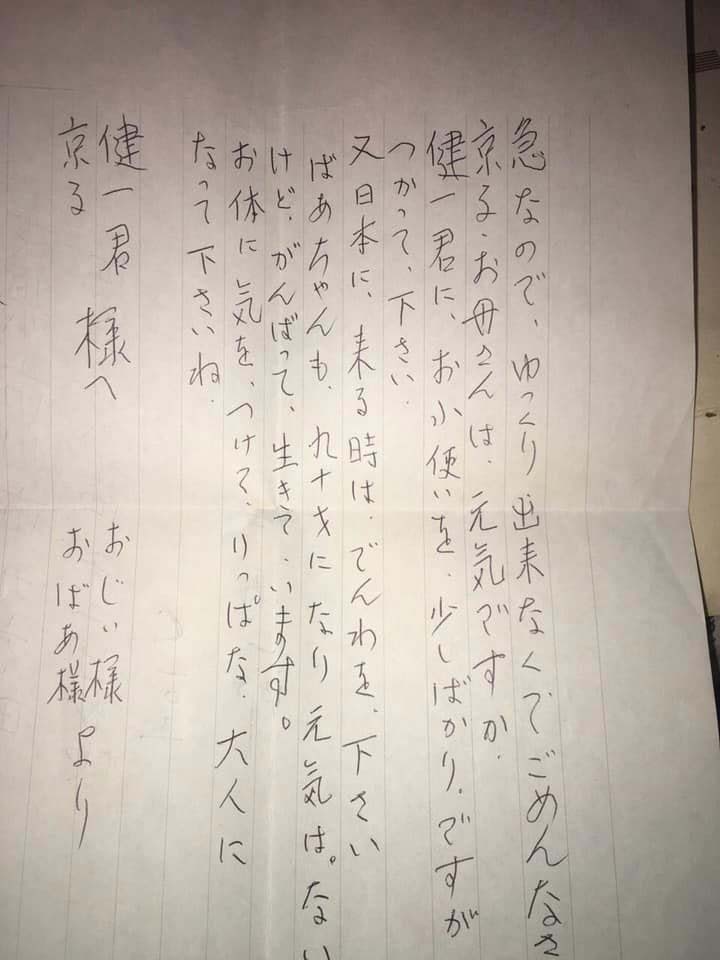 急なので、ゆっくり出来なくでごめんなさ
京る、お母さんは、元気ですか、
健一君に、お小使いを、少しばかり、ですが
つかって、下さい、
又日本に、来る時は、でんわを、下さい
ばあちゃんも、九十才になり元気は。ない
けど、がんばって、生きて、います。
お体に気を、つけて、りっぱな、大人に
なって下さいね、
健一君 様へ
京る
おじい様
おばあ様 より